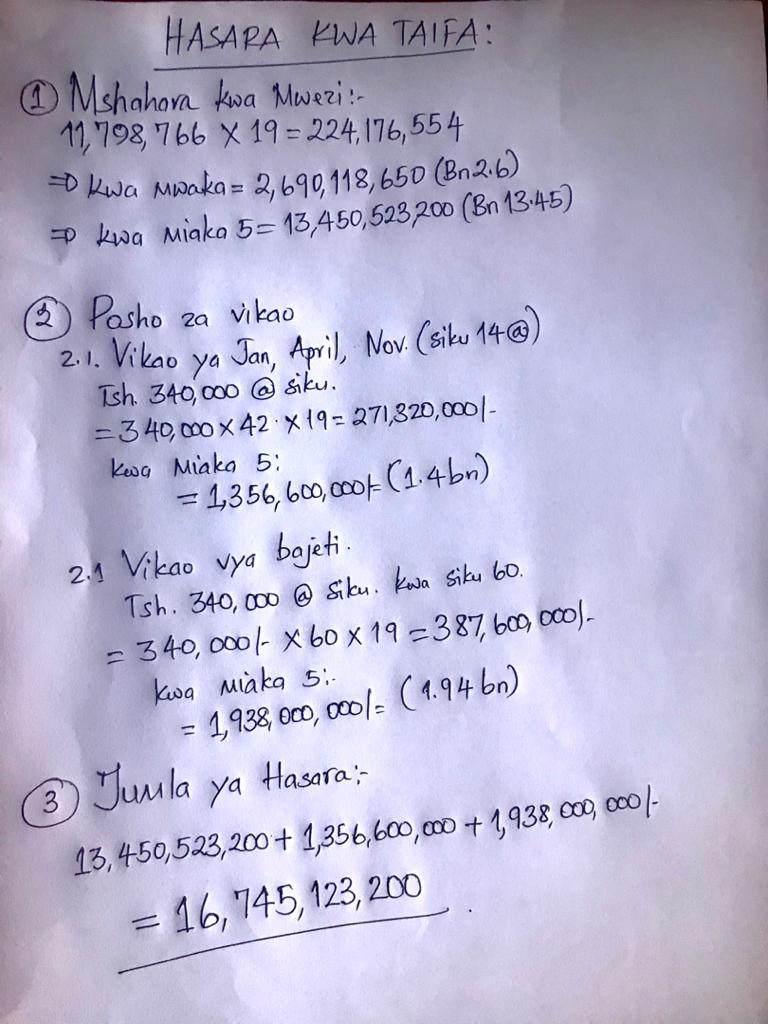 HASARA KWA TAIFA:
① Mshahara kwa Mwezi:-
11,798,766 X 19 = 224,176,554
⇒ Kwa Mwaka = 2,690,118,650 (Bn 2.6)
⇒ Kwa Miaka 5 = 13,450,523,200 (Bn 13.45)
② Posho za vikao
2.1. Vikao ya Jan, April, Nov. (siku 14@)
Tsh. 340,000 @ siku.
= 340,000 X 42 X 19 = 271,320,000/-
Kwa Miaka 5:
= 1,356,600,000/= (1.4bn)
2.1 Vikao vya bajeti.
Tsh. 340,000 @ siku. Kwa siku 60.
= 340,000/- X 60 X 19 = 387,600,000/-
Kwa miaka 5:-
= 1,938,000,000/= (1.94bn)
③ Jumla ya Hasara:-
13,450,523,200 + 1,356,600,000 + 1,938,000,000/-
= 16,745,123,200